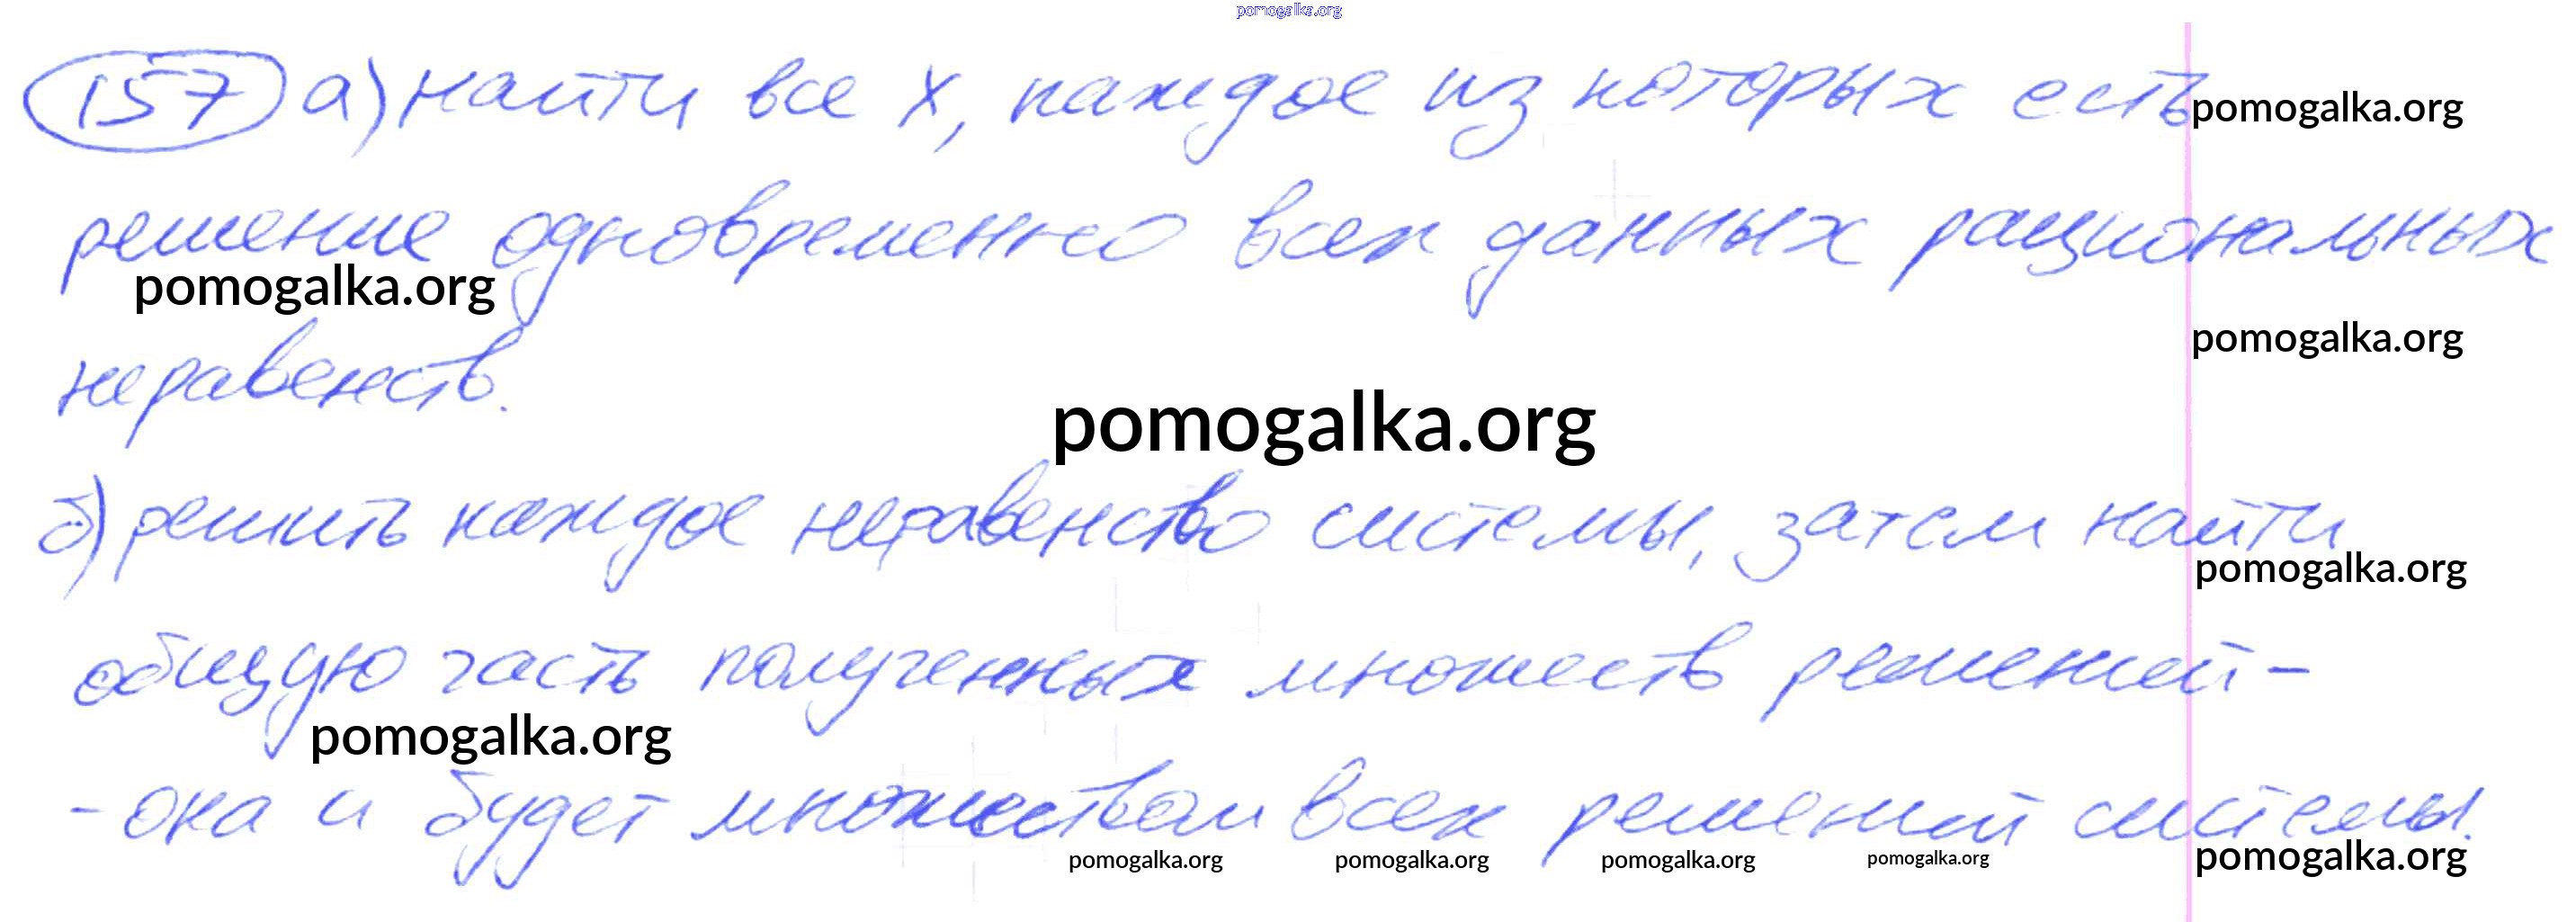 pomogalka.org
157 а) найти все x, каждое из которых есть pomogalka.org
решение одновременно всех данных рациональных
pomogalka.org
pomogalka.org
неравенств.
pomogalka.org
б) решить каждое неравенство системы, затем найти
pomogalka.org
общую часть полученных множеств решений -
pomogalka.org
- она и будет множеством всех решений системы.
pomogalka.org pomogalka.org pomogalka.org pomogalka.org pomogalka.org